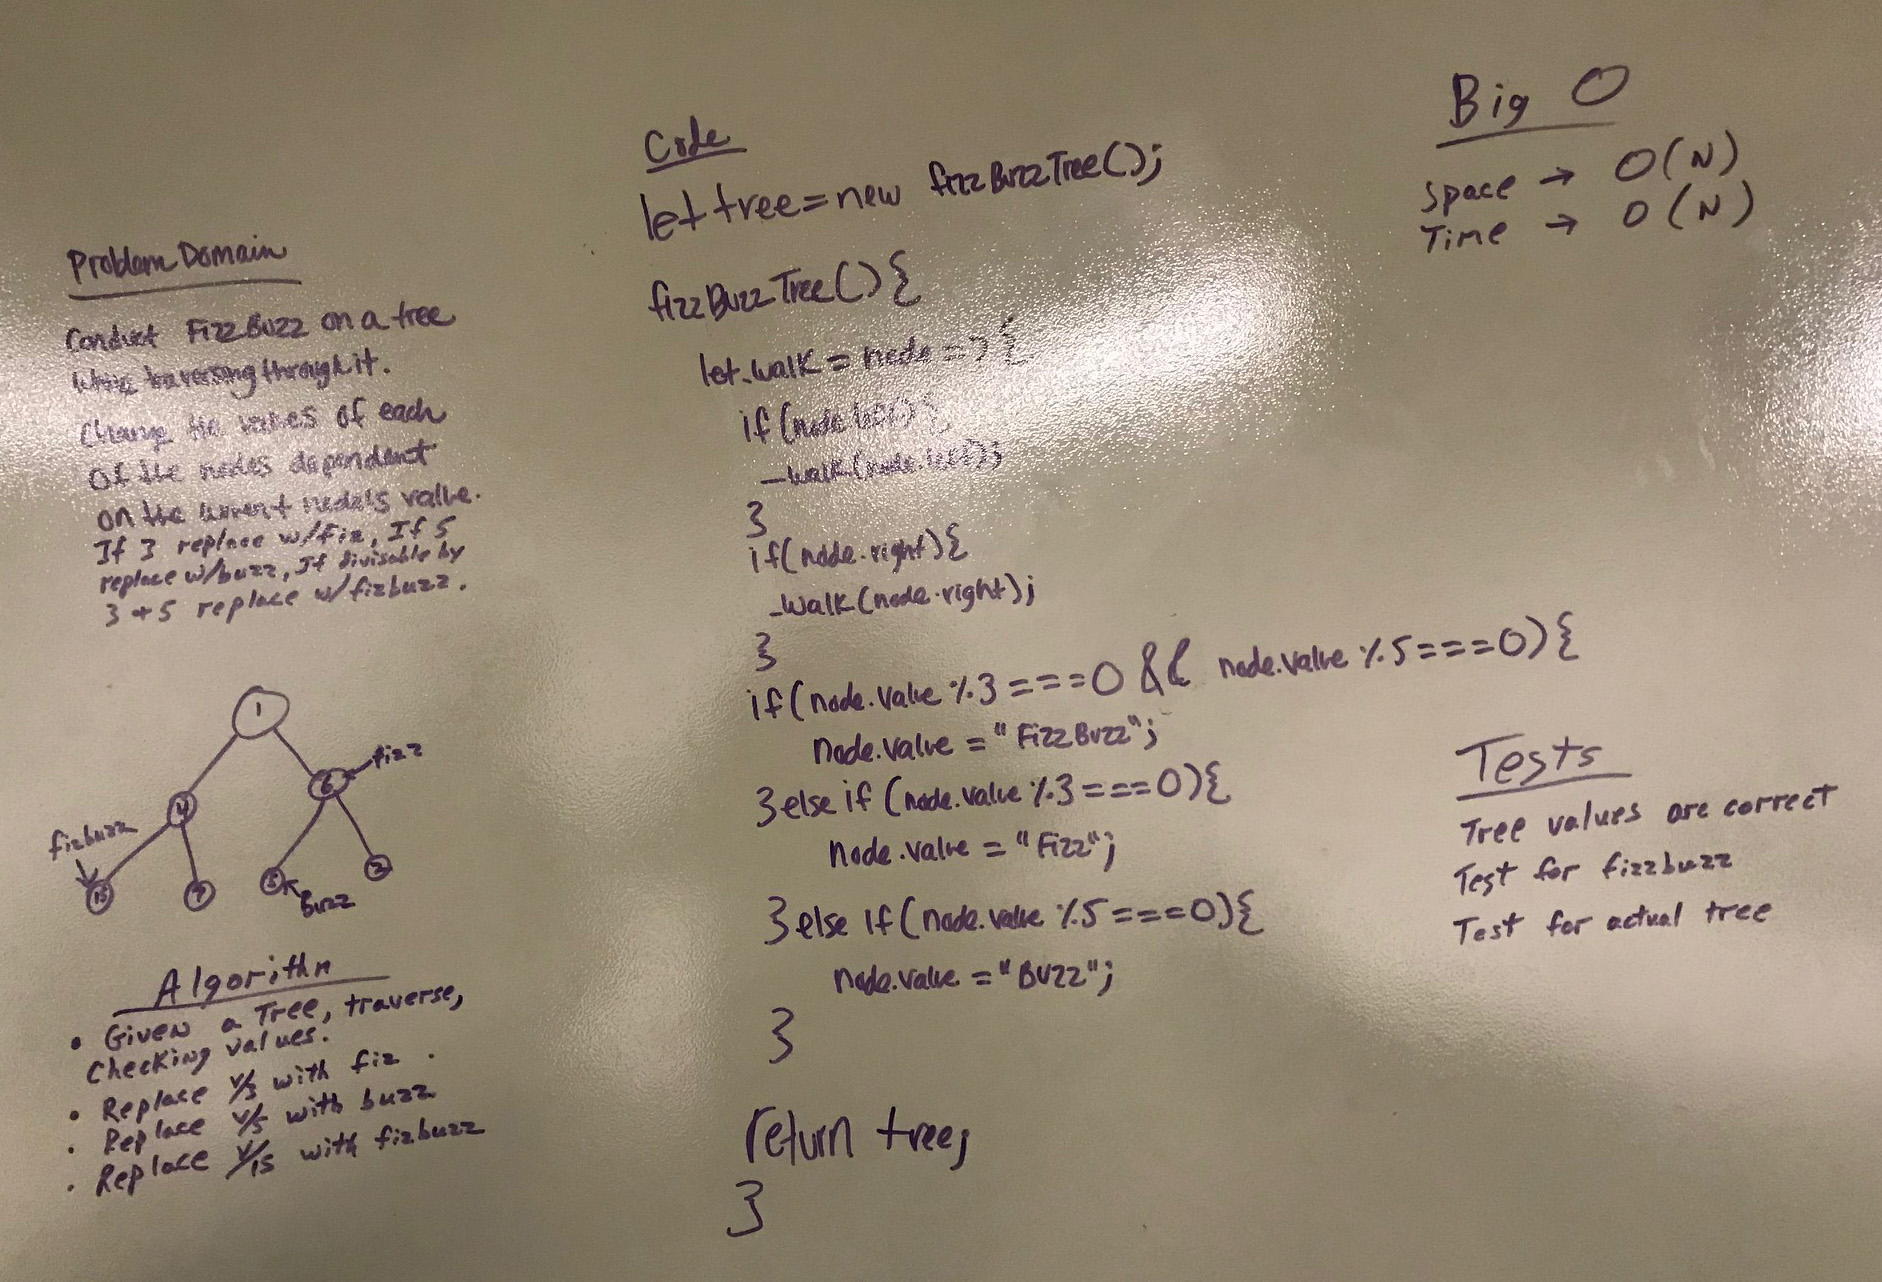 Problem Domain
Conduct FizzBuzz on a tree
while traversing through it.
Change the values of each
of the nodes dependent
on the current node's value.
If 3 replace w/Fiz, If 5
replace w/buzz, If divisable by
3 + 5 replace w/fizbuzz.
1
fizz
6
4
fizbuzz
15
7
5
Buzz
2
Algorithm
• Given a Tree, traverse,
Checking values.
• Replace V/3 with fiz.
• Replace V/5 with buzz
• Replace V/15 with fizbuzz
Code
let tree = new fizzBuzzTree();
fizzBuzzTree(){
let _walk = node => {
if (node.left){
_walk(node.left);
}
if(node.right){
_walk(node.right);
}
if(node.value %3===0 && node.value %5===0){
node.value = "FizzBuzz";
}else if (node.value %3===0){
node.value = "Fizz";
}else if(node.value %5===0){
node.value = "Buzz";
}
return tree;
}
Big O
Space → O(N)
Time → O(N)
Tests
Tree values are correct
Test for fizzbuzz
Test for actual tree